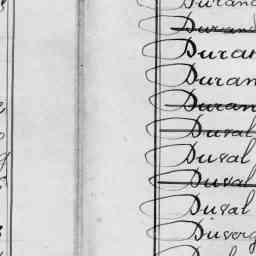 Duran
Durand
Duran
Duran
Duran
Duval
Duval
Duval
Duval
Duverg